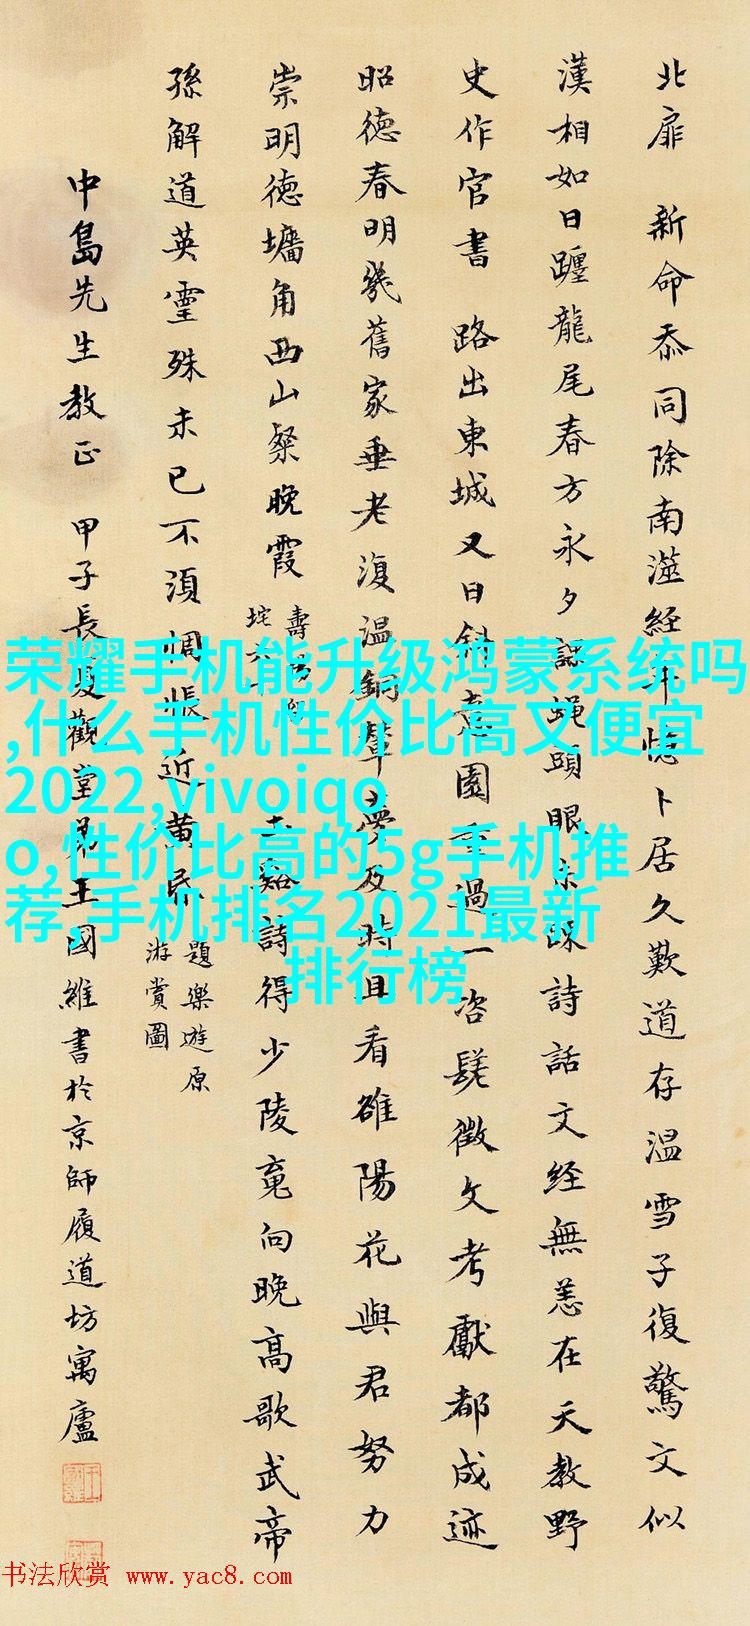 北扉 新命忝同除南澨經年憶卜居久歎道存温雪子復驚文似
漢相如日躔龍尾春方永夕課蝇頭眼未疎詩話文經無恙在天教野
史作官書 路出東城又日斜意園重過一咨嗟徵文考獻都成迹
昭德春明幾舊家垂老復温銅輦夢及時且看雒陽花與君努力
崇明德墉角西山粲晚霞
玉谿詩得少陵竟向晚高歌武帝
孫解道英靈殊未已不須惆悵近黄昏
題樂遊原
游賞圖
中島先生教正 甲子長夏觀堂弟王國維書於京師履道坊寓廬
荣耀手机能升级鸿蒙系统吗
,什么手机性价比高又便宜
2022,vivoiqo
o,性价比高的5g手机推
荐,手机排名2021最新
排行榜
书法欣赏 www.yac8.com